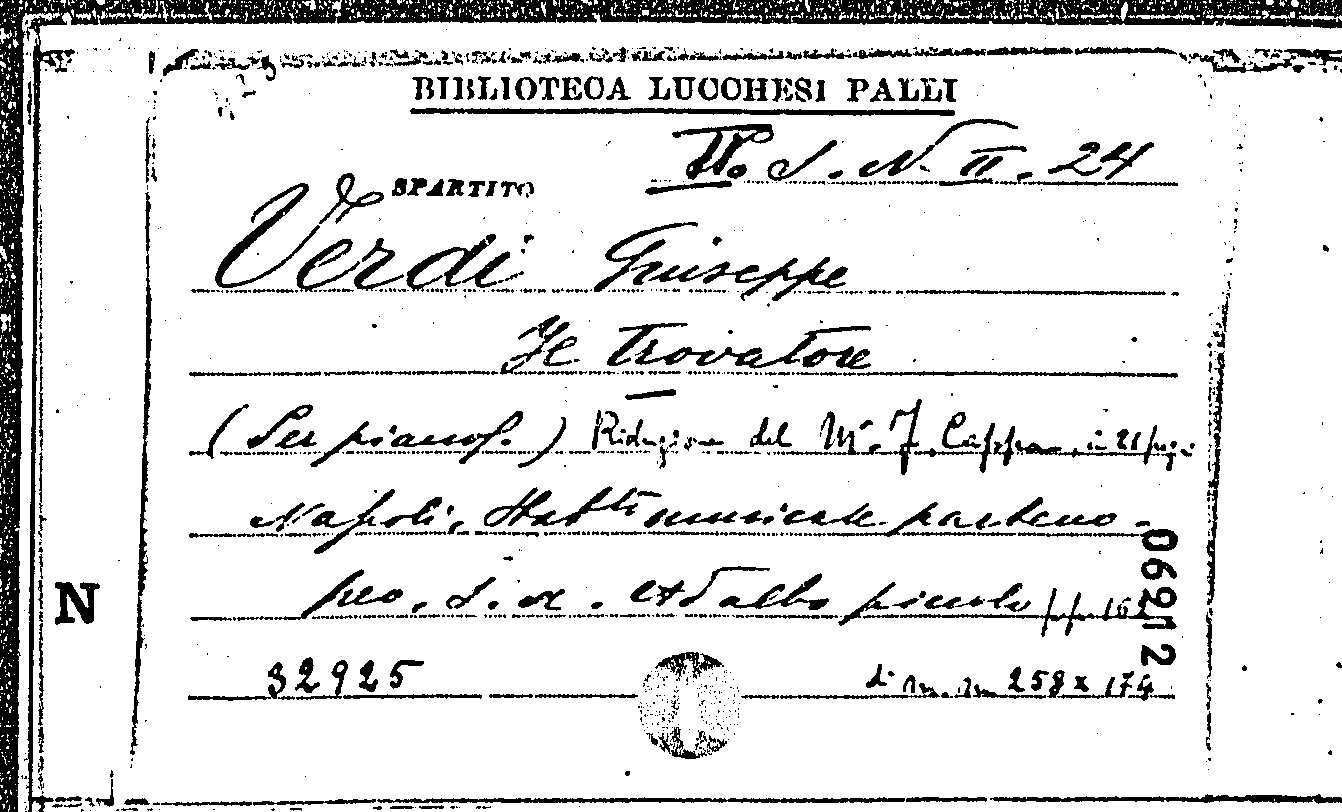 BIBLIOTECA LUCCHESI PALLI
II. S. N. II. 24
SPARTITO
Verdi Giuseppe
Il Trovatore
(Per pianof.) Riduzione del M°. J. Cappa, in 21 fugi
Napoli, Stab.ti musicale parteno-
peo, s. a. ad albo piccolo pp. 162
06212
N
32925
di m. m. 258 x 174